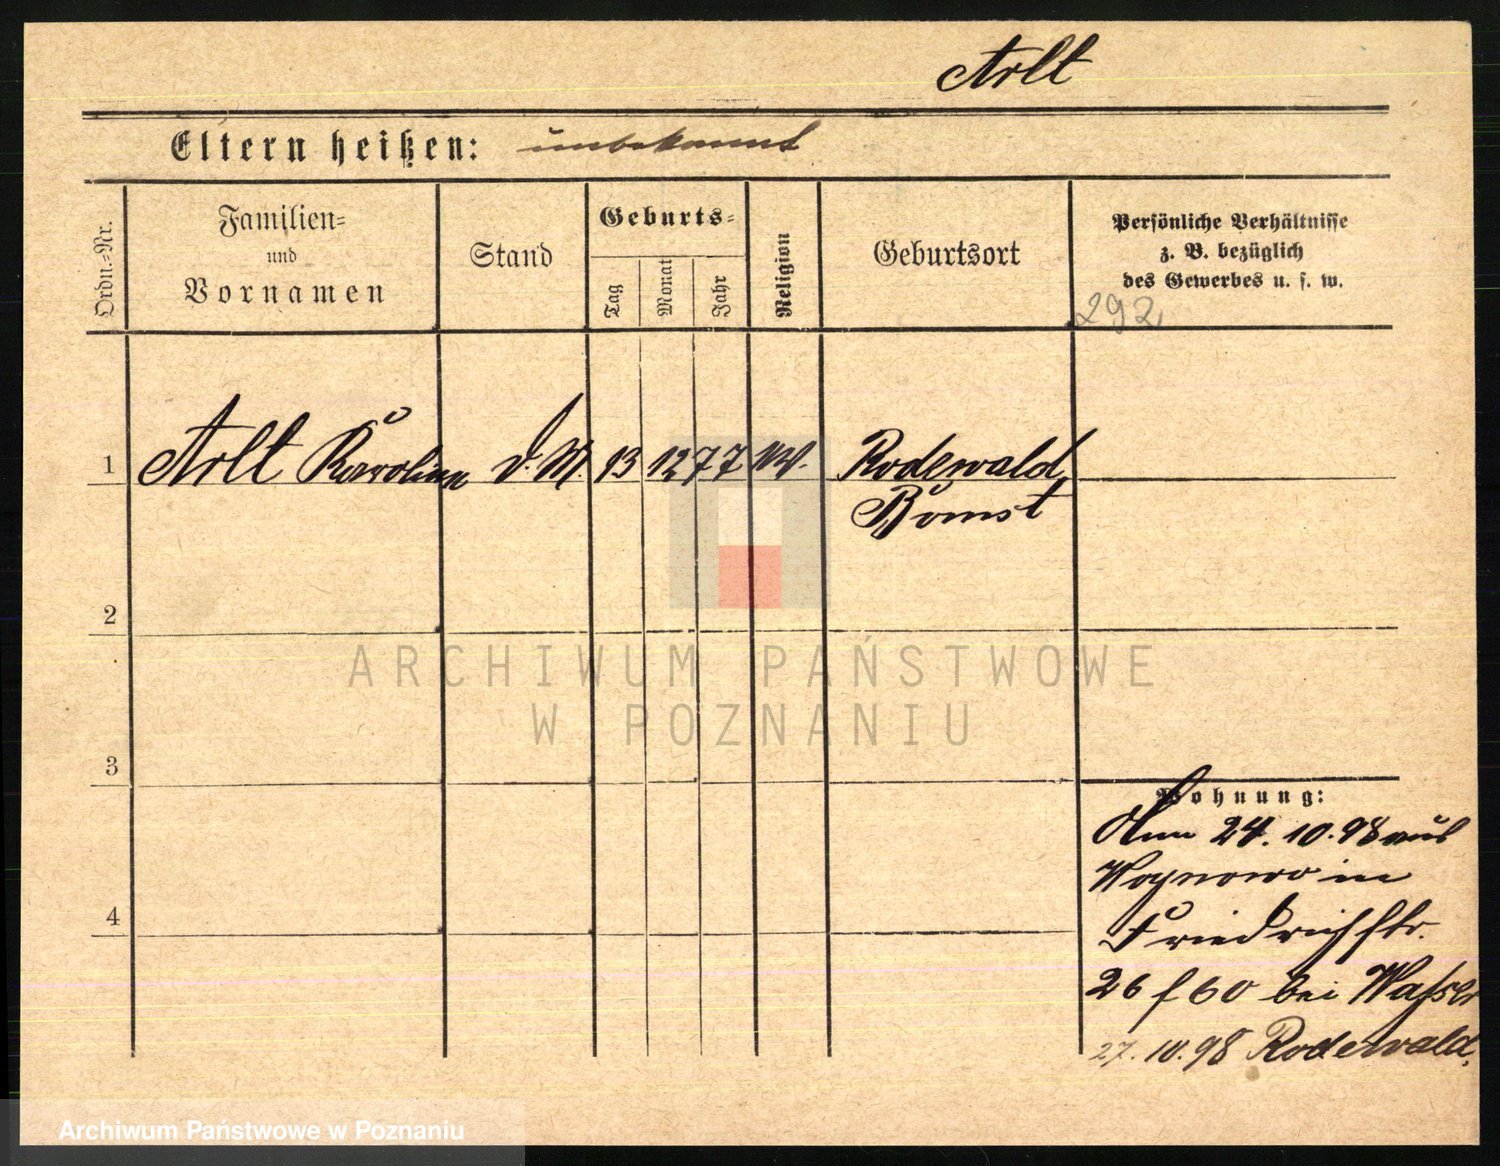 Arlt
Eltern heißen: unbekannt
Ordn.-Nr.
Familien-
und
Vornamen
Stand
Geburts-
Tag
Monat
Jahr
Religion
Geburtsort
Persönliche Verhältnisse
z. B. bezüglich
des Gewerbes u. s. w.
292.
1 Arlt Karoline d. M. 13 12 77 Rodewald,
Bomst
2
3
4
Wohnung:
24. 10. 98 aus
Woynowo in
Friedrichstr.
26 f 60 bei Wasser
27. 10. 98 Rodewald.
ARCHIWUM PAŃSTWOWE
W POZNANIU
Archiwum Państwowe w Poznaniu